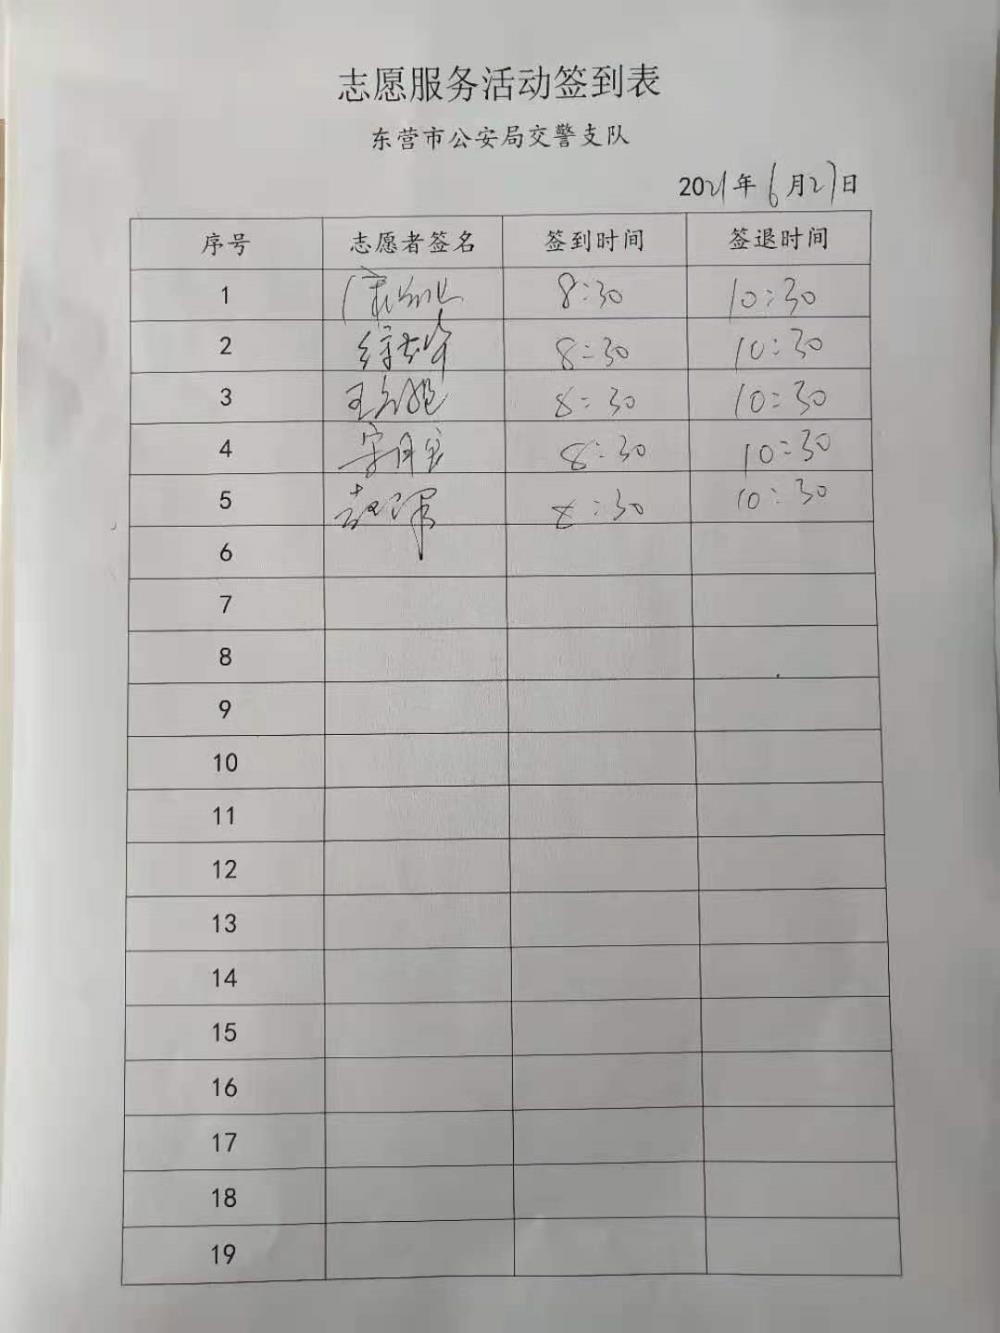 志愿服务活动签到表
东营市公安局交警支队
2021年6月27日
序号 志愿者签名 签到时间 签退时间
1 8:30 10:30
2 8:30 10:30
3 8:30 10:30
4 8:30 10:30
5 8:30 10:30
6
7
8
9
10
11
12
13
14
15
16
17
18
19